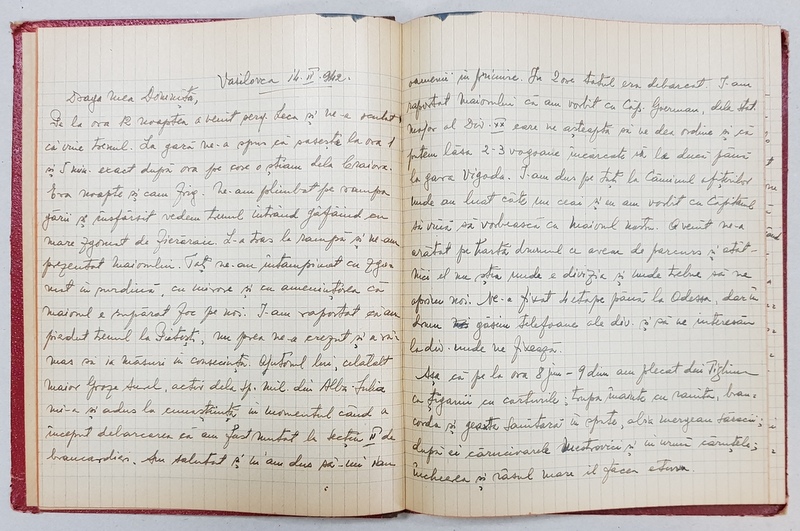 Vasilovca 14.IV.942.
Draga mea Domniță,
Pe la ora 12 noaptea a venit serg. Leca și ne-a
că vine trenul. La gară ne-a spus că sosește la ora 1
și 5 min. exact după ora pe care o știam dela Craiova.
Era noapte și cam frig. Ne-am plimbat pe rampa
gării și însfârșit vedem trenul intrând gâfâind cu
mare zgomot de fierărare. L-a tras la rampă și ne-am
prezentat maiorului. Toți ne-au întâmpinat cu
în surdină, cu mirare și cu amenințarea că
maiorul e supărat foc pe noi. I-am raportat că am
pierdut trenul la nu prea ne-a crezut și a
mas să ia măsuri în consecință. Ajutorul lui, celălalt
maior Groze Aurel, activ dela Sp. mil. din Alba-Iulia
mi-a și adus la cunoștință în momentul când a
început debarcarea că am fost mutat la secția II de
brancardieri. Am salutat și m'am dus să-mi iau
oamenii în primire. În 2 ore totul era debarcat. I-am
raportat maiorului că am vorbit cu Cap. Gherman, dela Stat
major al Div. care ne așteaptă să ne dea ordine și că
putem lăsa 2-3 vagoane încărcate să le ducă până
la gara Vigoda. I-am dus pe toți la Căminul ofițerilor
unde au luat câte un ceai și în am vorbit cu Căpitanul
să vină să vorbească cu maiorul nostru. A venit ne-a
arătat pe hartă drumul ce avem de parcurs și atât
nici el nu știa unde e divizia și unde trebue să ne
oprim noi. Ne-a fixat 4 etape până la Odessa, dar în
drum găsim telefoane ale div. și să ne interesăm
la div. unde ne fixează.
Așa că pe la ora 8 jum - 9 dim am plecat din
cu țiganii cu corturile; trupa înainte cu ranița, bran-
carda și geanta sanitară în spate, abia mergeau săracii;
după ei cărucioarele și în urmă căruțele;
închearea și râsul mare îl făcea